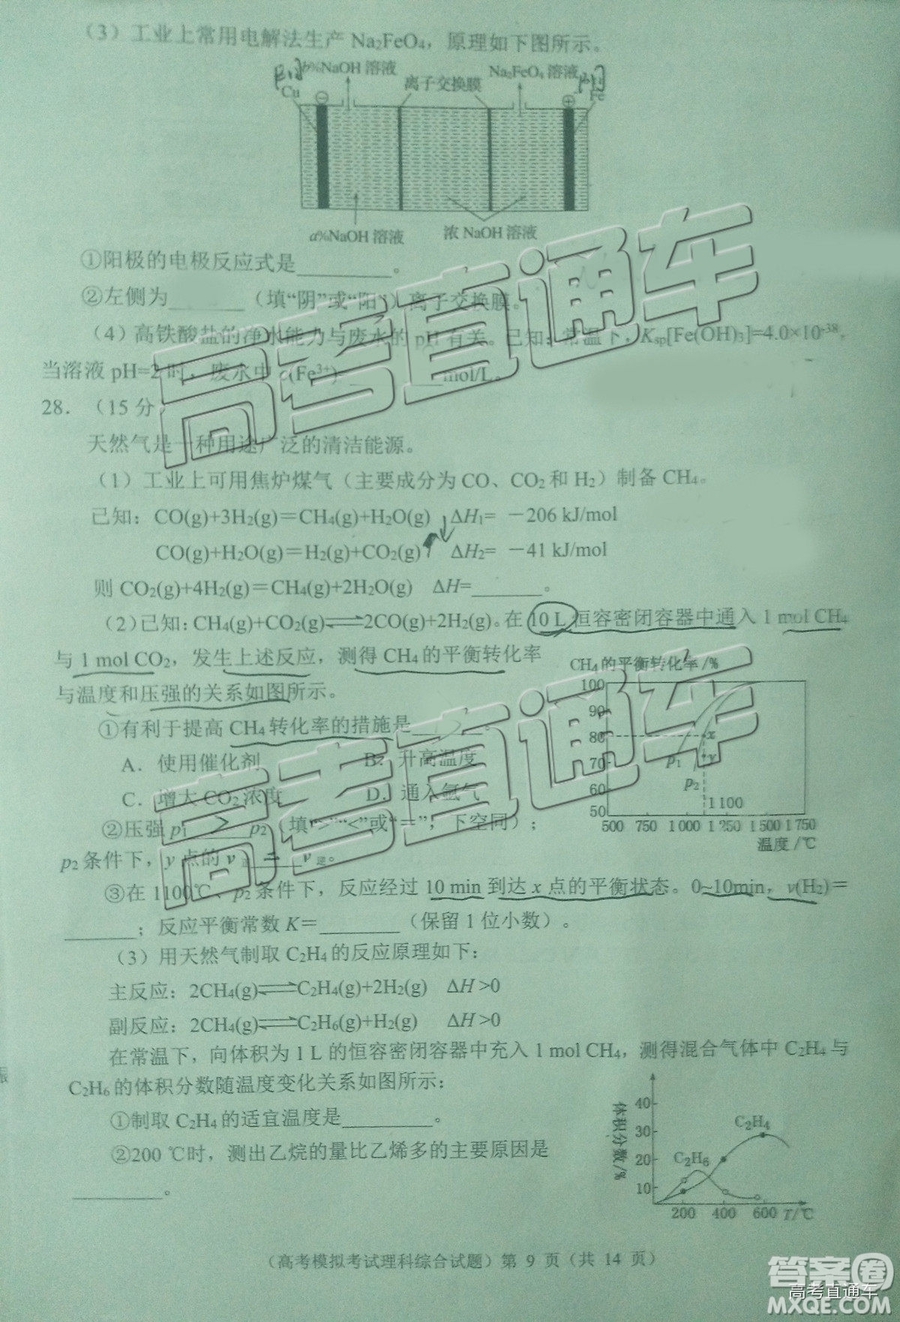 （3）工业上常用电解法生产 Na₂FeO₄，原理如下图所示。
b%NaOH 溶液
离子交换膜
Na₂FeO₄ 溶液
Cu
Fe
a%NaOH 溶液
浓 NaOH 溶液
①阳极的电极反应式是________。
②左侧为______（填“阴”或“阳”）离子交换膜。
（4）高铁酸盐的净水能力与废水的 pH 有关。已知：常温下，Ksp[Fe(OH)₃]=4.0×10⁻³⁸，
当溶液 pH=2 时，废水中 c(Fe³⁺)=______mol/L。
28．（15 分）
天然气是一种用途广泛的清洁能源。
（1）工业上可用焦炉煤气（主要成分为 CO、CO₂和 H₂）制备 CH₄。
已知：CO(g)+3H₂(g)＝CH₄(g)+H₂O(g) ΔH₁= －206 kJ/mol
CO(g)+H₂O(g)＝H₂(g)+CO₂(g) ΔH₂= －41 kJ/mol
则 CO₂(g)+4H₂(g)＝CH₄(g)+2H₂O(g) ΔH=______。
（2）已知：CH₄(g)+CO₂(g)⇌2CO(g)+2H₂(g)。在 10 L 恒容密闭容器中通入 1 mol CH₄
与 1 mol CO₂，发生上述反应，测得 CH₄ 的平衡转化率
与温度和压强的关系如图所示。
①有利于提高 CH₄ 转化率的措施是______。
A．使用催化剂 B．升高温度
C．增大 CO₂ 浓度 D．通入氩气
②压强 p₁ > p₂（填“>”“<”或“＝”；下空同）；
p₂ 条件下，y 点的 v正____v逆。
CH₄ 的平衡转化率 /%
100
90
80
70
60
50
x
y
p₁
p₂
1100
500 750 1 000 1 250 1 500 1 750
温度 /℃
③在 1100℃、p₂ 条件下，反应经过 10 min 到达 x 点的平衡状态。0~10min，v(H₂)＝
______；反应平衡常数 K＝______（保留 1 位小数）。
（3）用天然气制取 C₂H₄ 的反应原理如下：
主反应：2CH₄(g)⇌C₂H₄(g)+2H₂(g) ΔH >0
副反应：2CH₄(g)⇌C₂H₆(g)+H₂(g) ΔH >0
在常温下，向体积为 1 L 的恒容密闭容器中充入 1 mol CH₄，测得混合气体中 C₂H₄ 与
C₂H₆ 的体积分数随温度变化关系如图所示：
①制取 C₂H₄ 的适宜温度是________。
②200 ℃时，测出乙烷的量比乙烯多的主要原因是
________。
体积分数/%
40
30
20
10
C₂H₄
C₂H₆
200 400 600 T/℃
（高考模拟考试理科综合试题）第 9 页（共 14 页）
高考直通车
高考直通车
答案圈
高考直通车
MXQE.COM